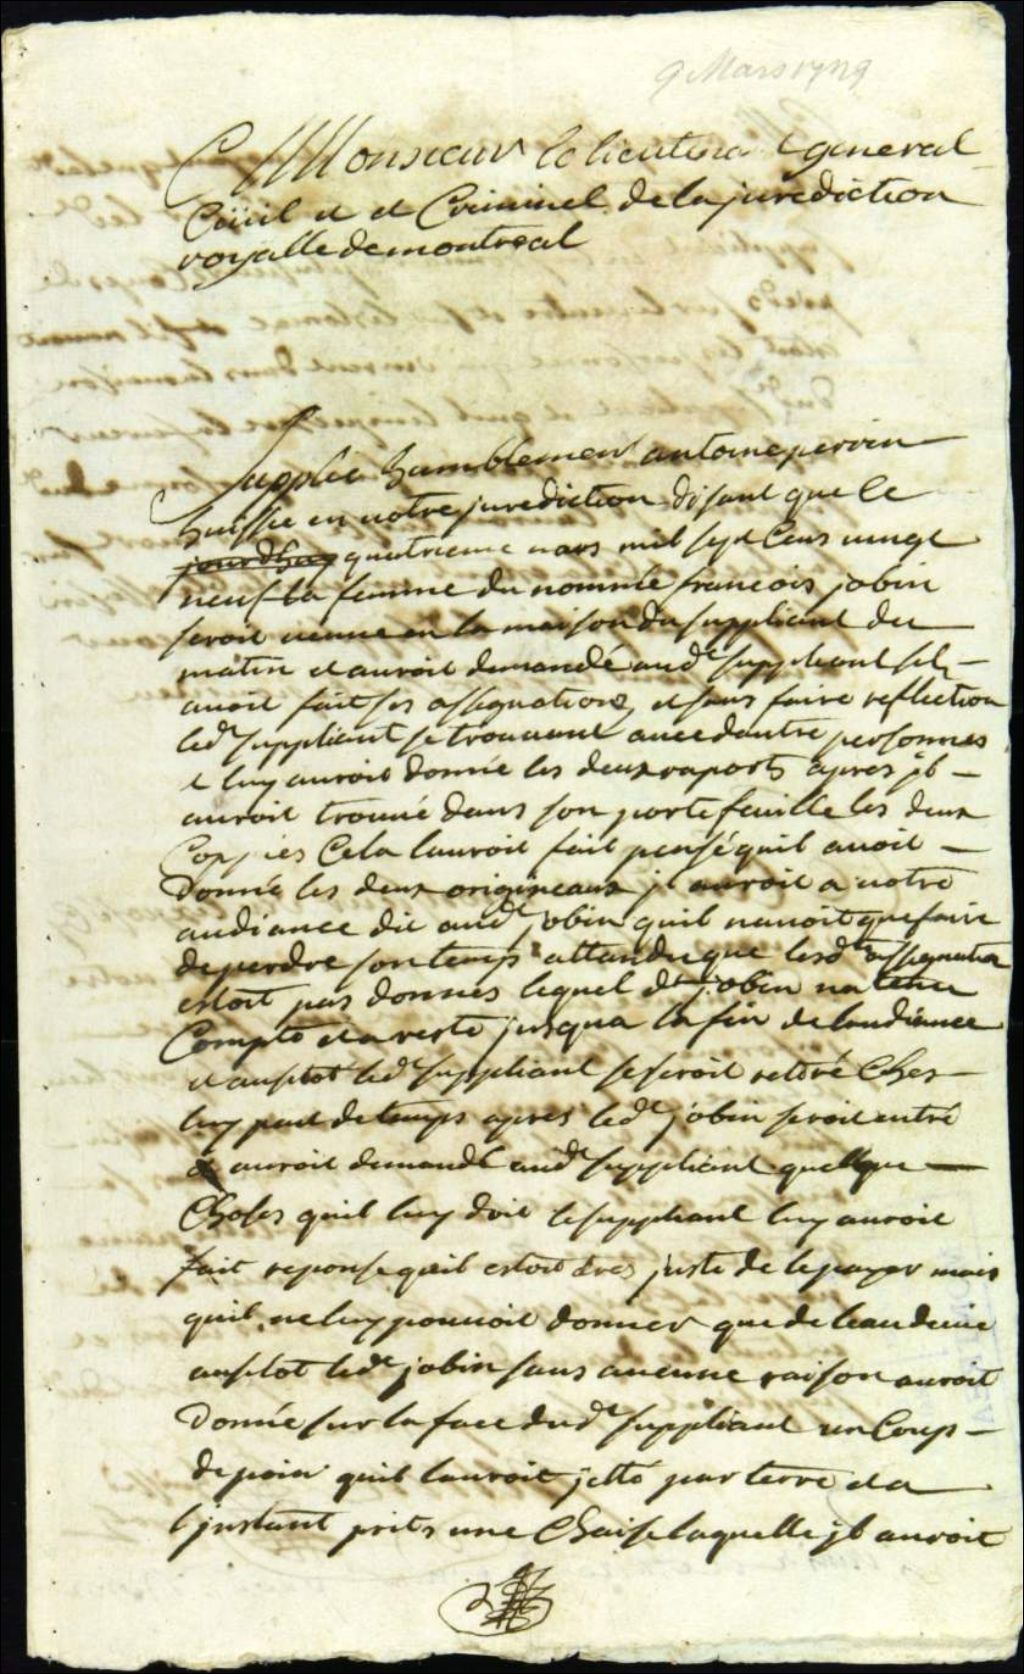 9 Mars 1729
A Monsieur le lieutena t general
Ciuil et et Criminel de la jurediction
royalle de montreal
Supplie humblement antoine perrin
huissie en notre juredition disant que le
jourdhuy quatrieme mars mil sept Cens uingt
neuf la femme du nommée francois jobin
seroit uenue en la maison du suppliant du
matin et auroit demandé audt suppliant sil
auoit fait ses assignations, et sans faire reflection
ledt suppliant se trouuant auec dautre personnes
l luy auroit donnée les deux raports apres jl
auroit trouué dans son porte feuille les deux
Coppies Cela lauroit fait pensé quil auoit
donnée les deux origineaux jl auroit a notre
audiance dit audt jobin quil nauoit que faire
de perdre son temps attandu que lesd assignation
estoit pas donnés lequel dt jobin na tenu
Compte et a resté jusqua la fin de laudiance
et ausitot ledt suppliant se seroit retiré Ches
luy peut de temps apres ledt jobin seroit entré
& auroit demandé audt suppliant quelque
Choses quil luy doit le suppliant luy auroit
fait reponse quil estoit tres juste de le payer mais
quil ne luy pouuoit donner que de leau deuie
ausitot ledt jobin sans aucune raison auroit
donnée sur la face dudt suppliant un Coup
de poin quil lauroit jetté par terre et a
ljnstant prits une Chaise laquelle jl auroit